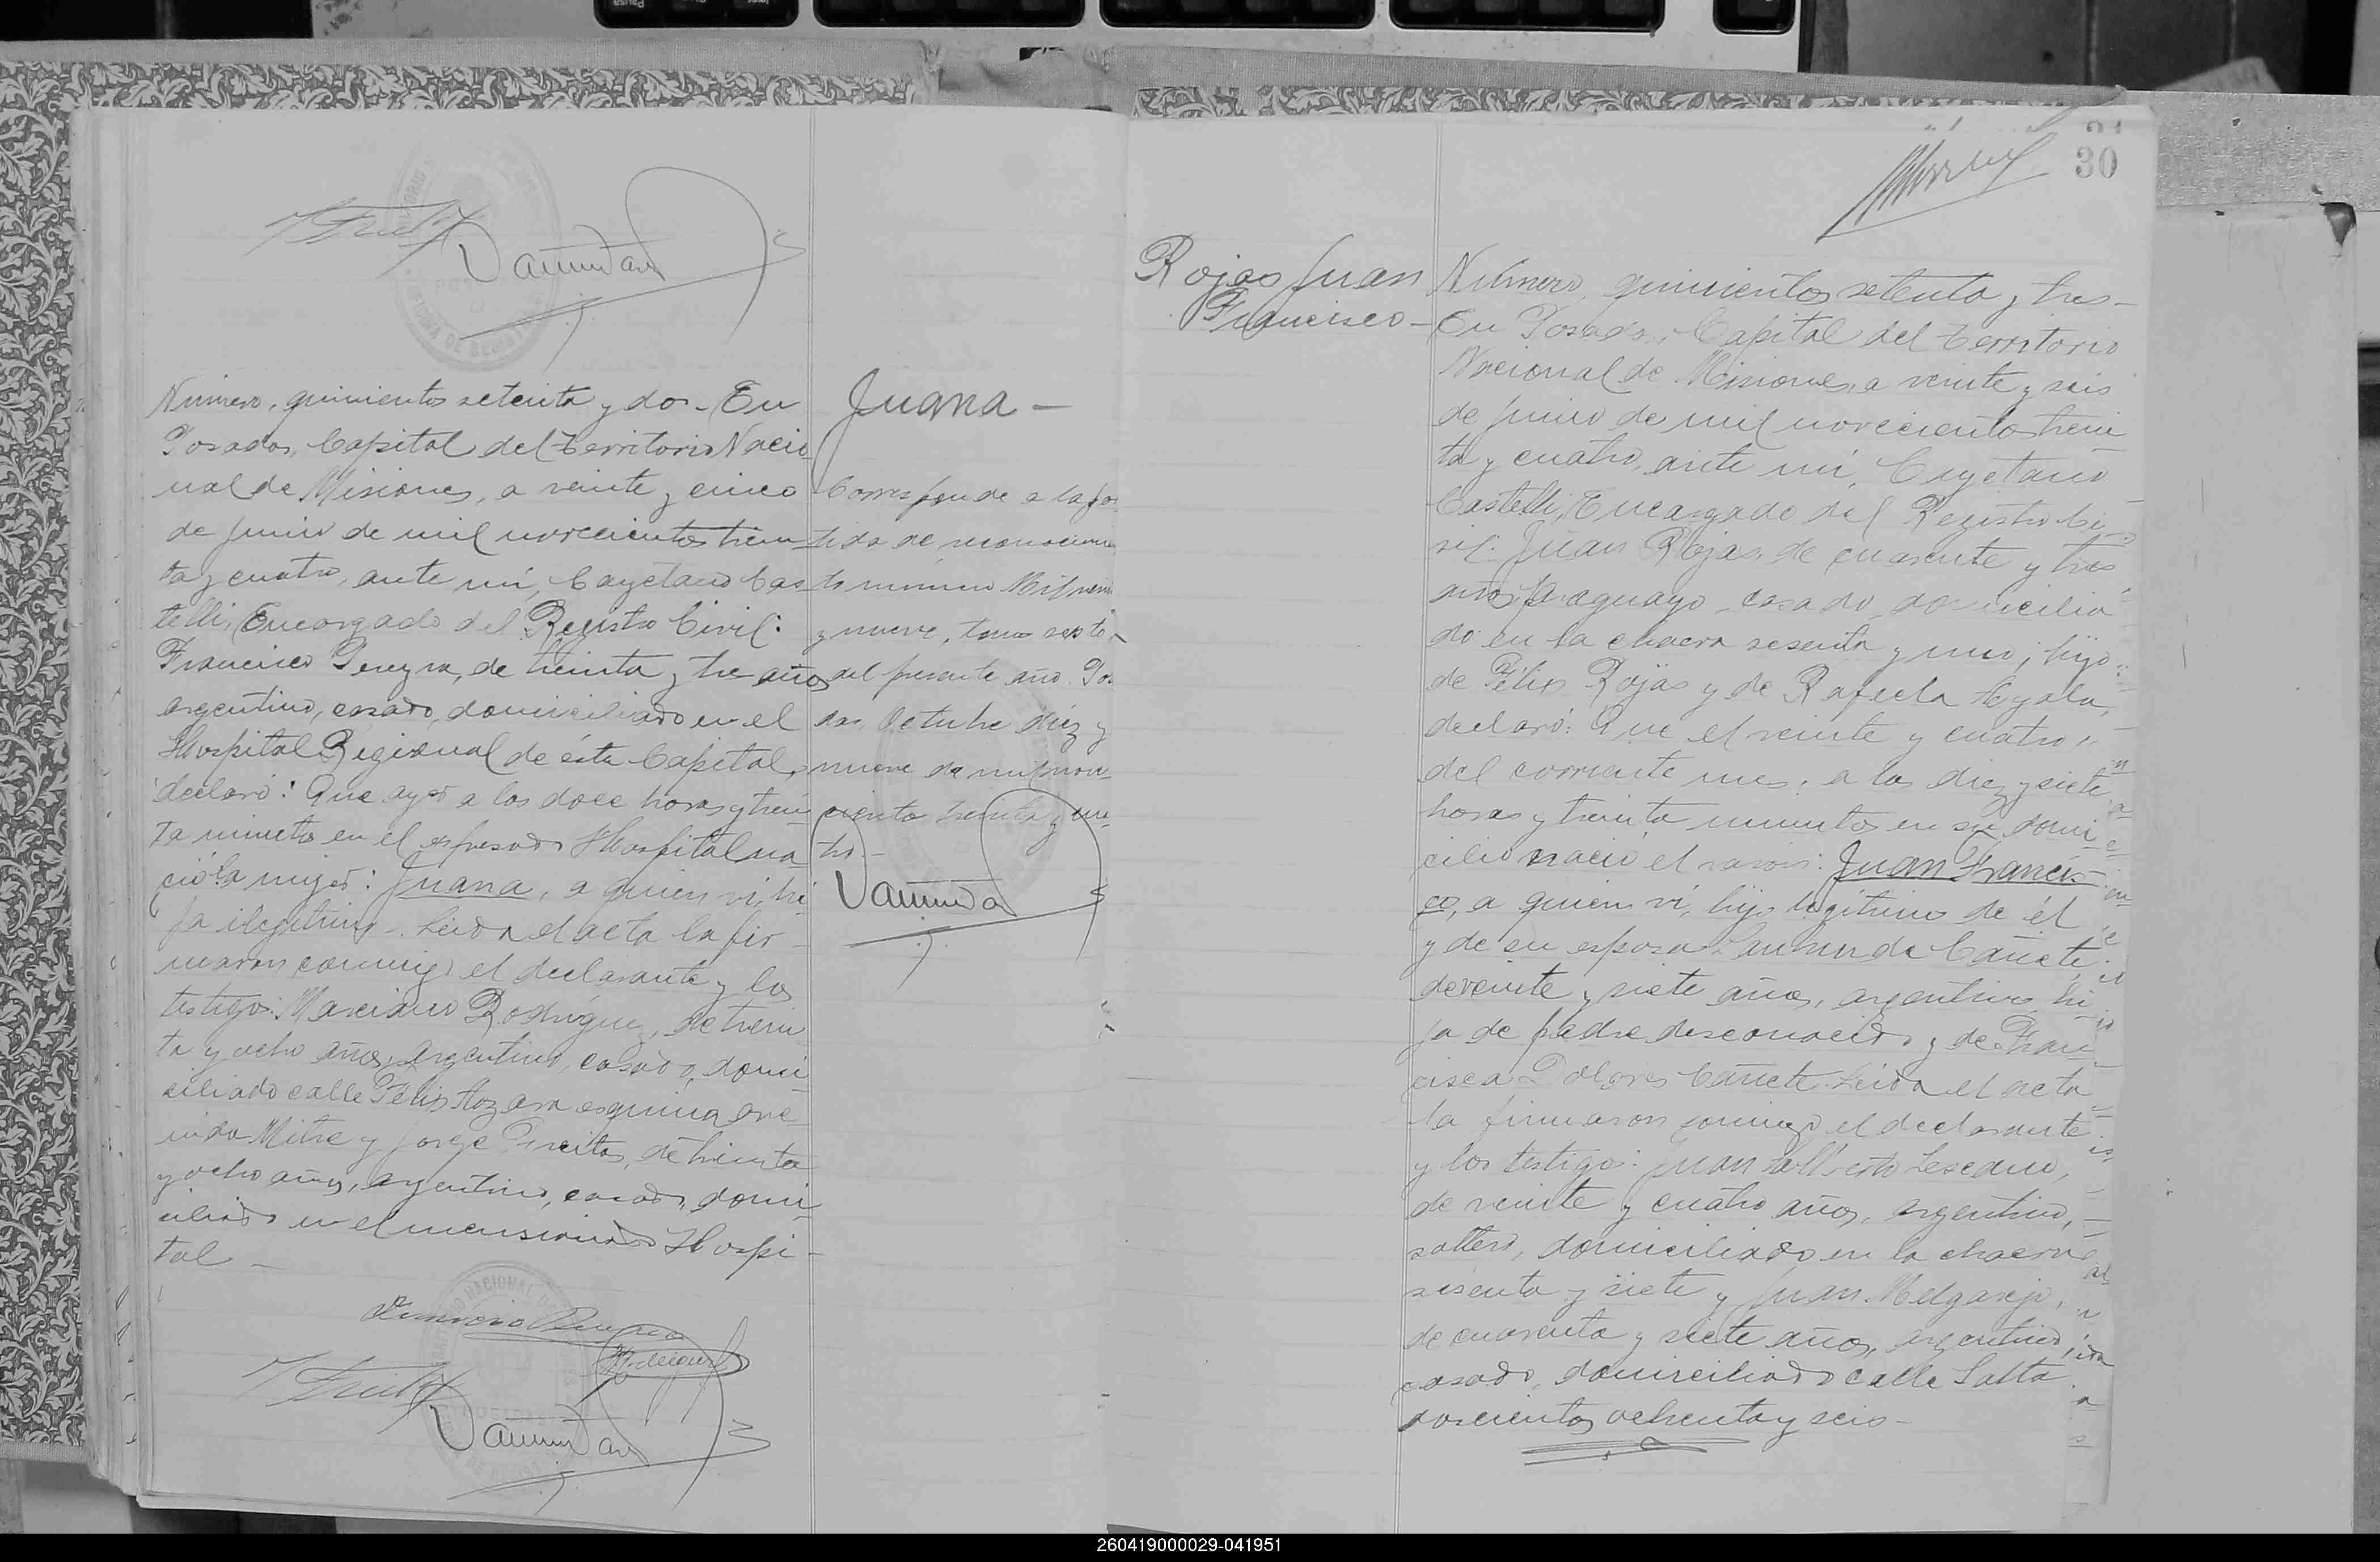 Número, quinientos setenta y dos - En
Posadas, Capital del Territorio Nacio
nal de Misiones, a veinte y cinco
de junio de mil novecientos trein
ta y cuatro, ante mí, Cayetano Cas
telli, Encargado del Registro Civil:
Francisco Pereyra, de treinta y tre años
argentino, casado, domiciliado en el
Hospital Regional de ésta Capital,
declaró: Que ayer a las doce horas y trein
ta minutos en el expresado Hospital na
ció la mujer: Juana, a quien ví, hi
ja ilegítima. Leida el acta la fir
maron conmigo el declarante y los
testigos: Marciano Rodríguez, de trein
ta y ocho años, argentino, casado, domi
ciliado calle Félix Azara esquina ave
nida Mitre y Jorge de treinta
y ocho años, argentino, casado, domi
ciliado en el mensionado Hospi-
tal -
Juana -
Corresponde a la par
tida de reconocimien
to número Mil
y nueve, tomo sexto
del presente año. Posa
das, Octubre diez y
nueve de mil nove
cientos treinta y cua
tro.-
30
Rojas Juan
Francisco -
Número, quinientos setenta y tres -
En Posadas, Capital del Territorio
Nacional de Misiones, a veinte y seis
de junio de mil novecientos trein
ta y cuatro, ante mí, Cayetano
Castelli, Encargado del Registro Ci
vil: Juan Rojas, de cuarenta y tres
años, paraguayo, casado, domicilia
do en la chacra sesenta y uno; hijo
de Félix Rojas y de Rafaela Ayala,
declaró: Que el veinte y cuatro
del corriente mes, a las diez y siete
horas y treinta minutos en su domi
cilio nació el varón: Juan Francis
co, a quien ví, hijo legítimo de él
y de su esposa Cañete
de veinte y siete años, argentina, hi
ja de padre desconocido y de Fran
cisca Dolores Cañete. Leida el acta
la firmaron conmigo el declarante
y los testigo: Juan Alberto Lescano,
de veinte y cuatro años, argentino,
soltero, domiciliado en la chacra
sesenta y siete y Juan Melgarejo,
de cuarenta y siete años, argentino,
casado, domiciliado calle Salta
doscientos ochenta y seis -
260419000029-041951